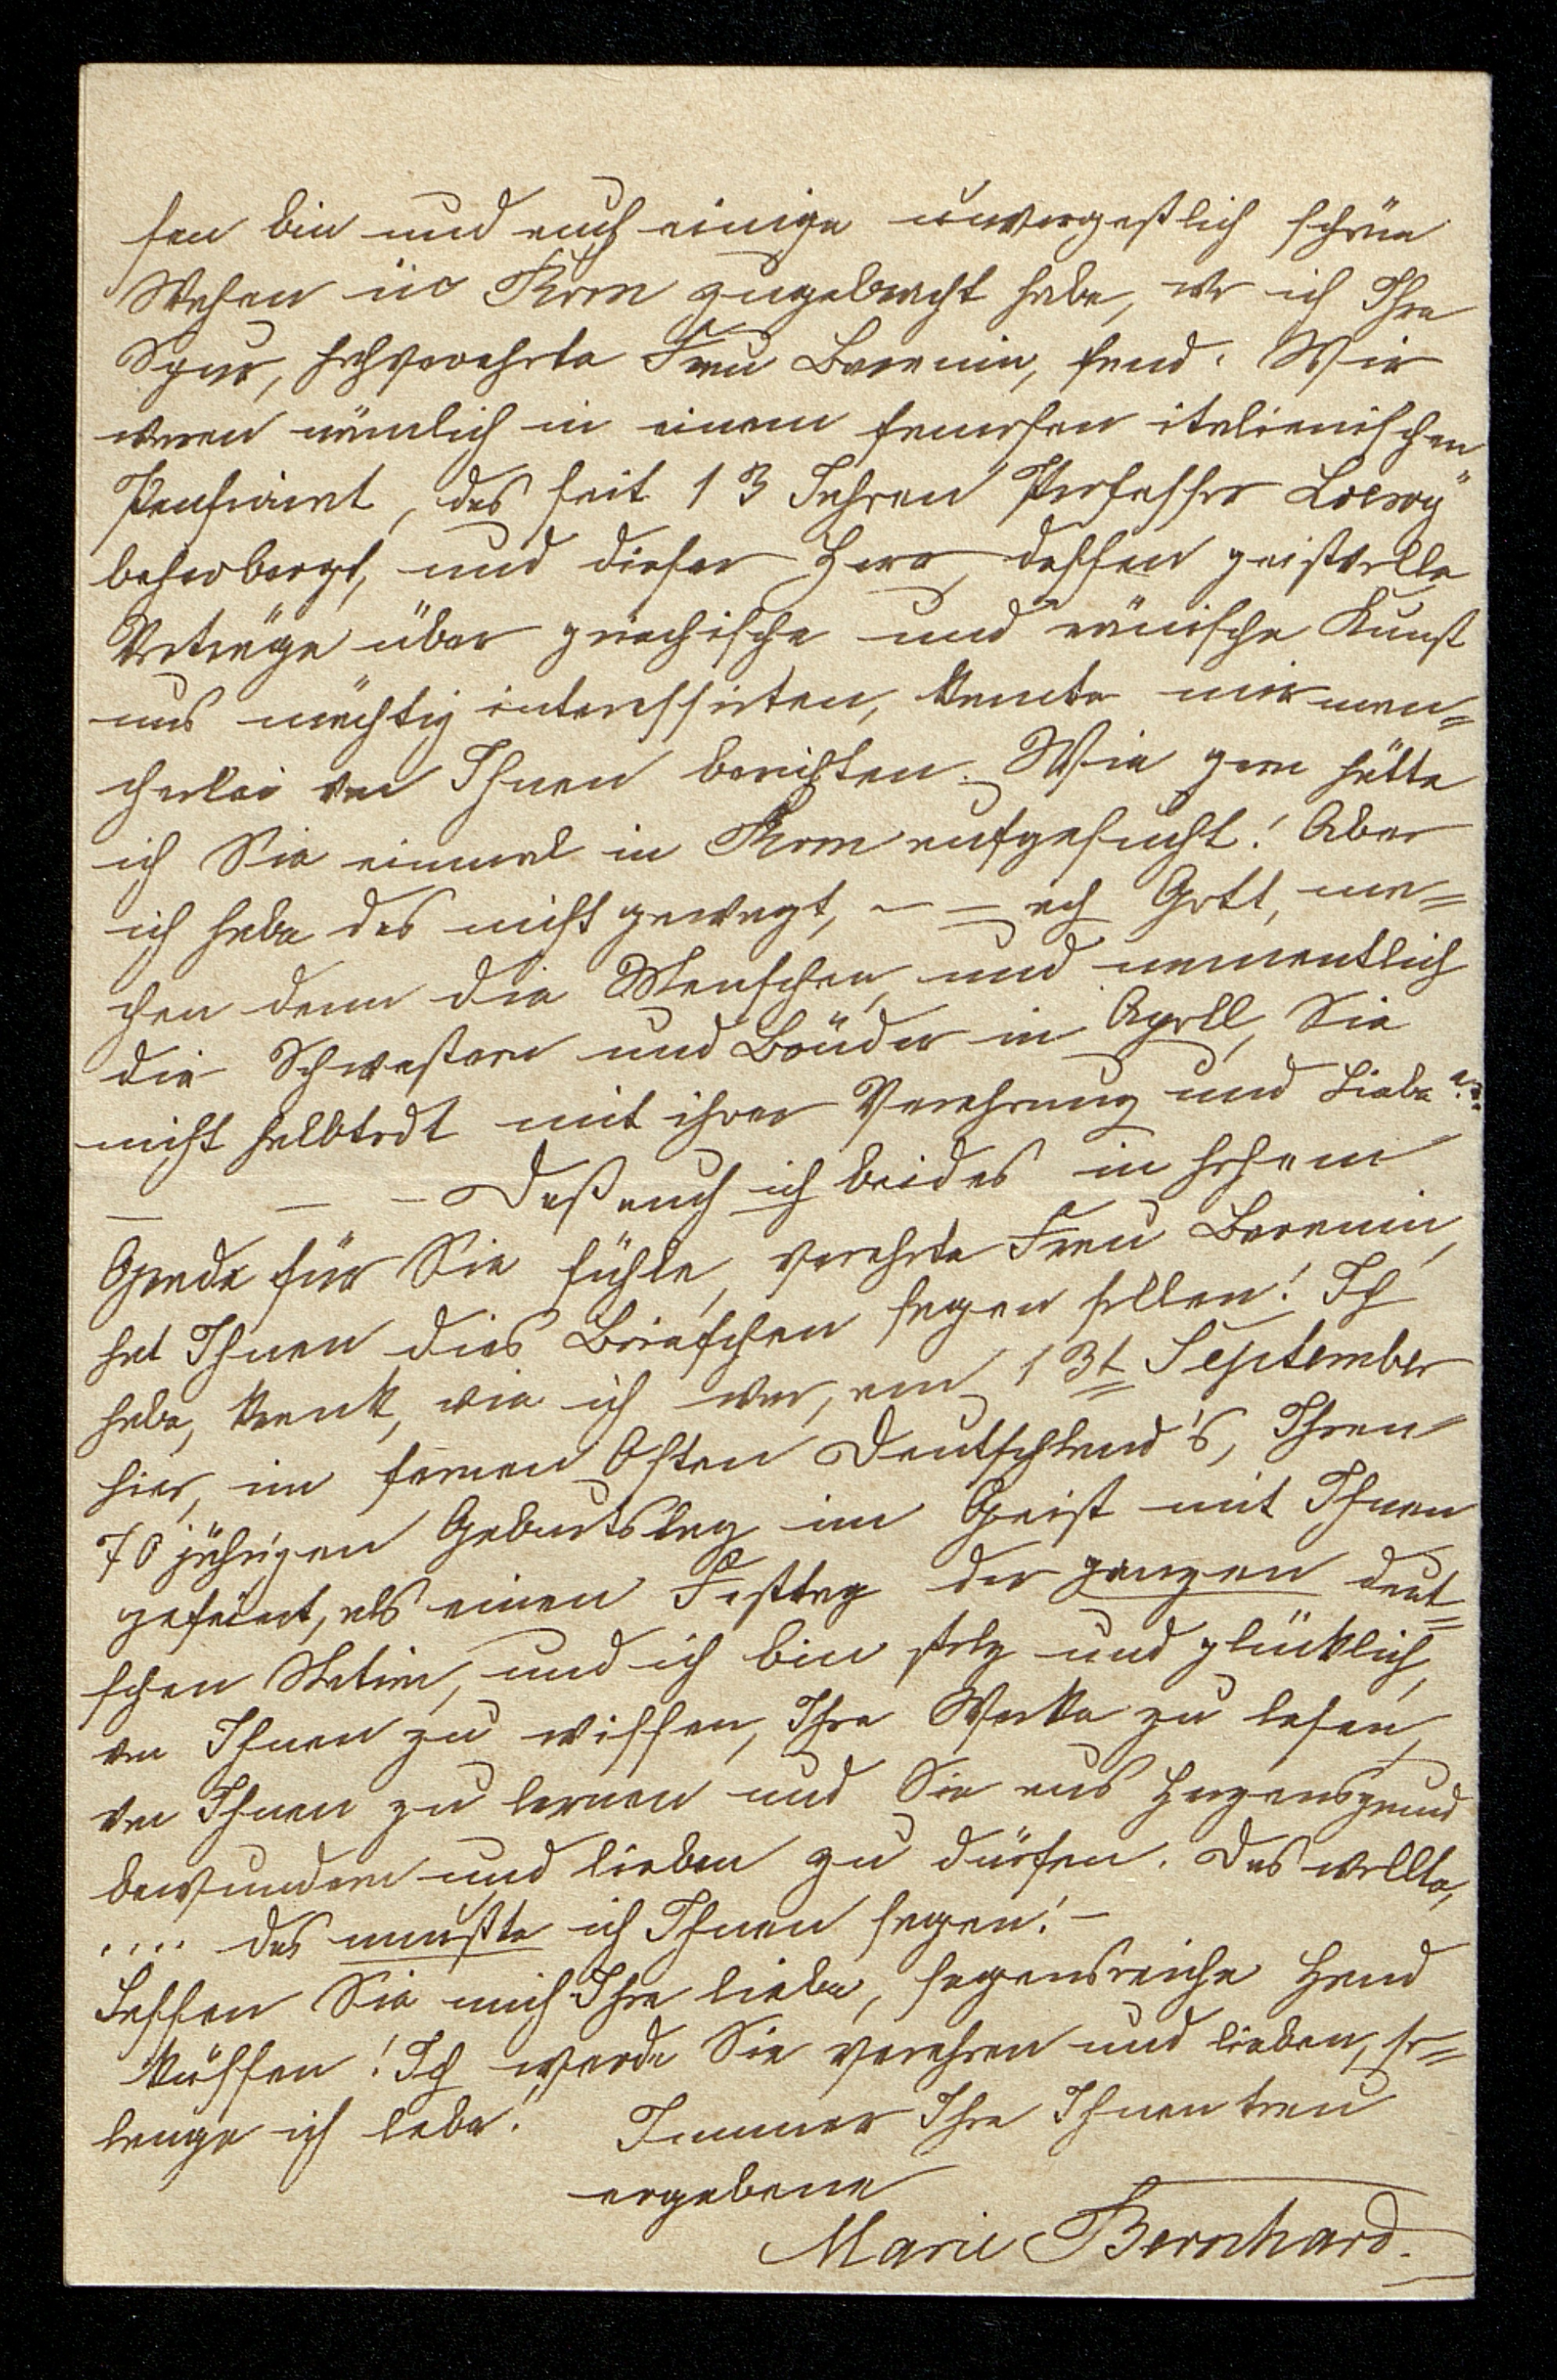 sen bin und auch einige unvergeßlich schöne
Wochen in Rom zugebracht habe, wo ich Ihre
Spur, hochverehrte Frau Baronin, fand. Wir
waren nämlich in einem famosen italienischen
Pensionat, das seit 13 Jahren "Professor Loewy"
beherbergt, und dieser Herr, dessen geistvolle
Vorträge über griechische und römische Kunst
uns mächtig interessirten, konnte mir man=
cherlei von Ihnen berichten. Wie gern hätte
ich Sie einmal in Rom aufgesucht! Aber
ich habe das nicht gewagt, – – ach Gott, ma=
chen denn die Menschen, und namentlich
die Schwestern und Brüder in Apoll, Sie
nicht halbtodt mit ihrer Verehrung und Liebe??
– – – Daß auch ich beides in hohem
Grade für Sie fühle, verehrte Frau Baronin,
hat Ihnen dies Briefchen sagen sollen! Ich
habe, krank, wie ich war, am 13t September
hier, im fernen Osten Deutschland's, Ihren
70 jährigen Geburtstag im Geist mit Ihnen
gefeiert, als einen Festtag der ganzen deut=
schen Nation, und ich bin stolz und glücklich,
von Ihnen zu wissen, Ihre Werke zu lesen,
von Ihnen zu lernen und Sie aus Herzensgrund
bewundern und lieben zu dürfen. Das wollte,
.... das mußte ich Ihnen sagen! –
Lassen Sie mich Ihre liebe, segensreiche Hand
küssen! Ich werde Sie verehren und lieben, so=
lange ich lebe! Immer Ihre Ihnen treu
ergebene
Marie Bernhard.